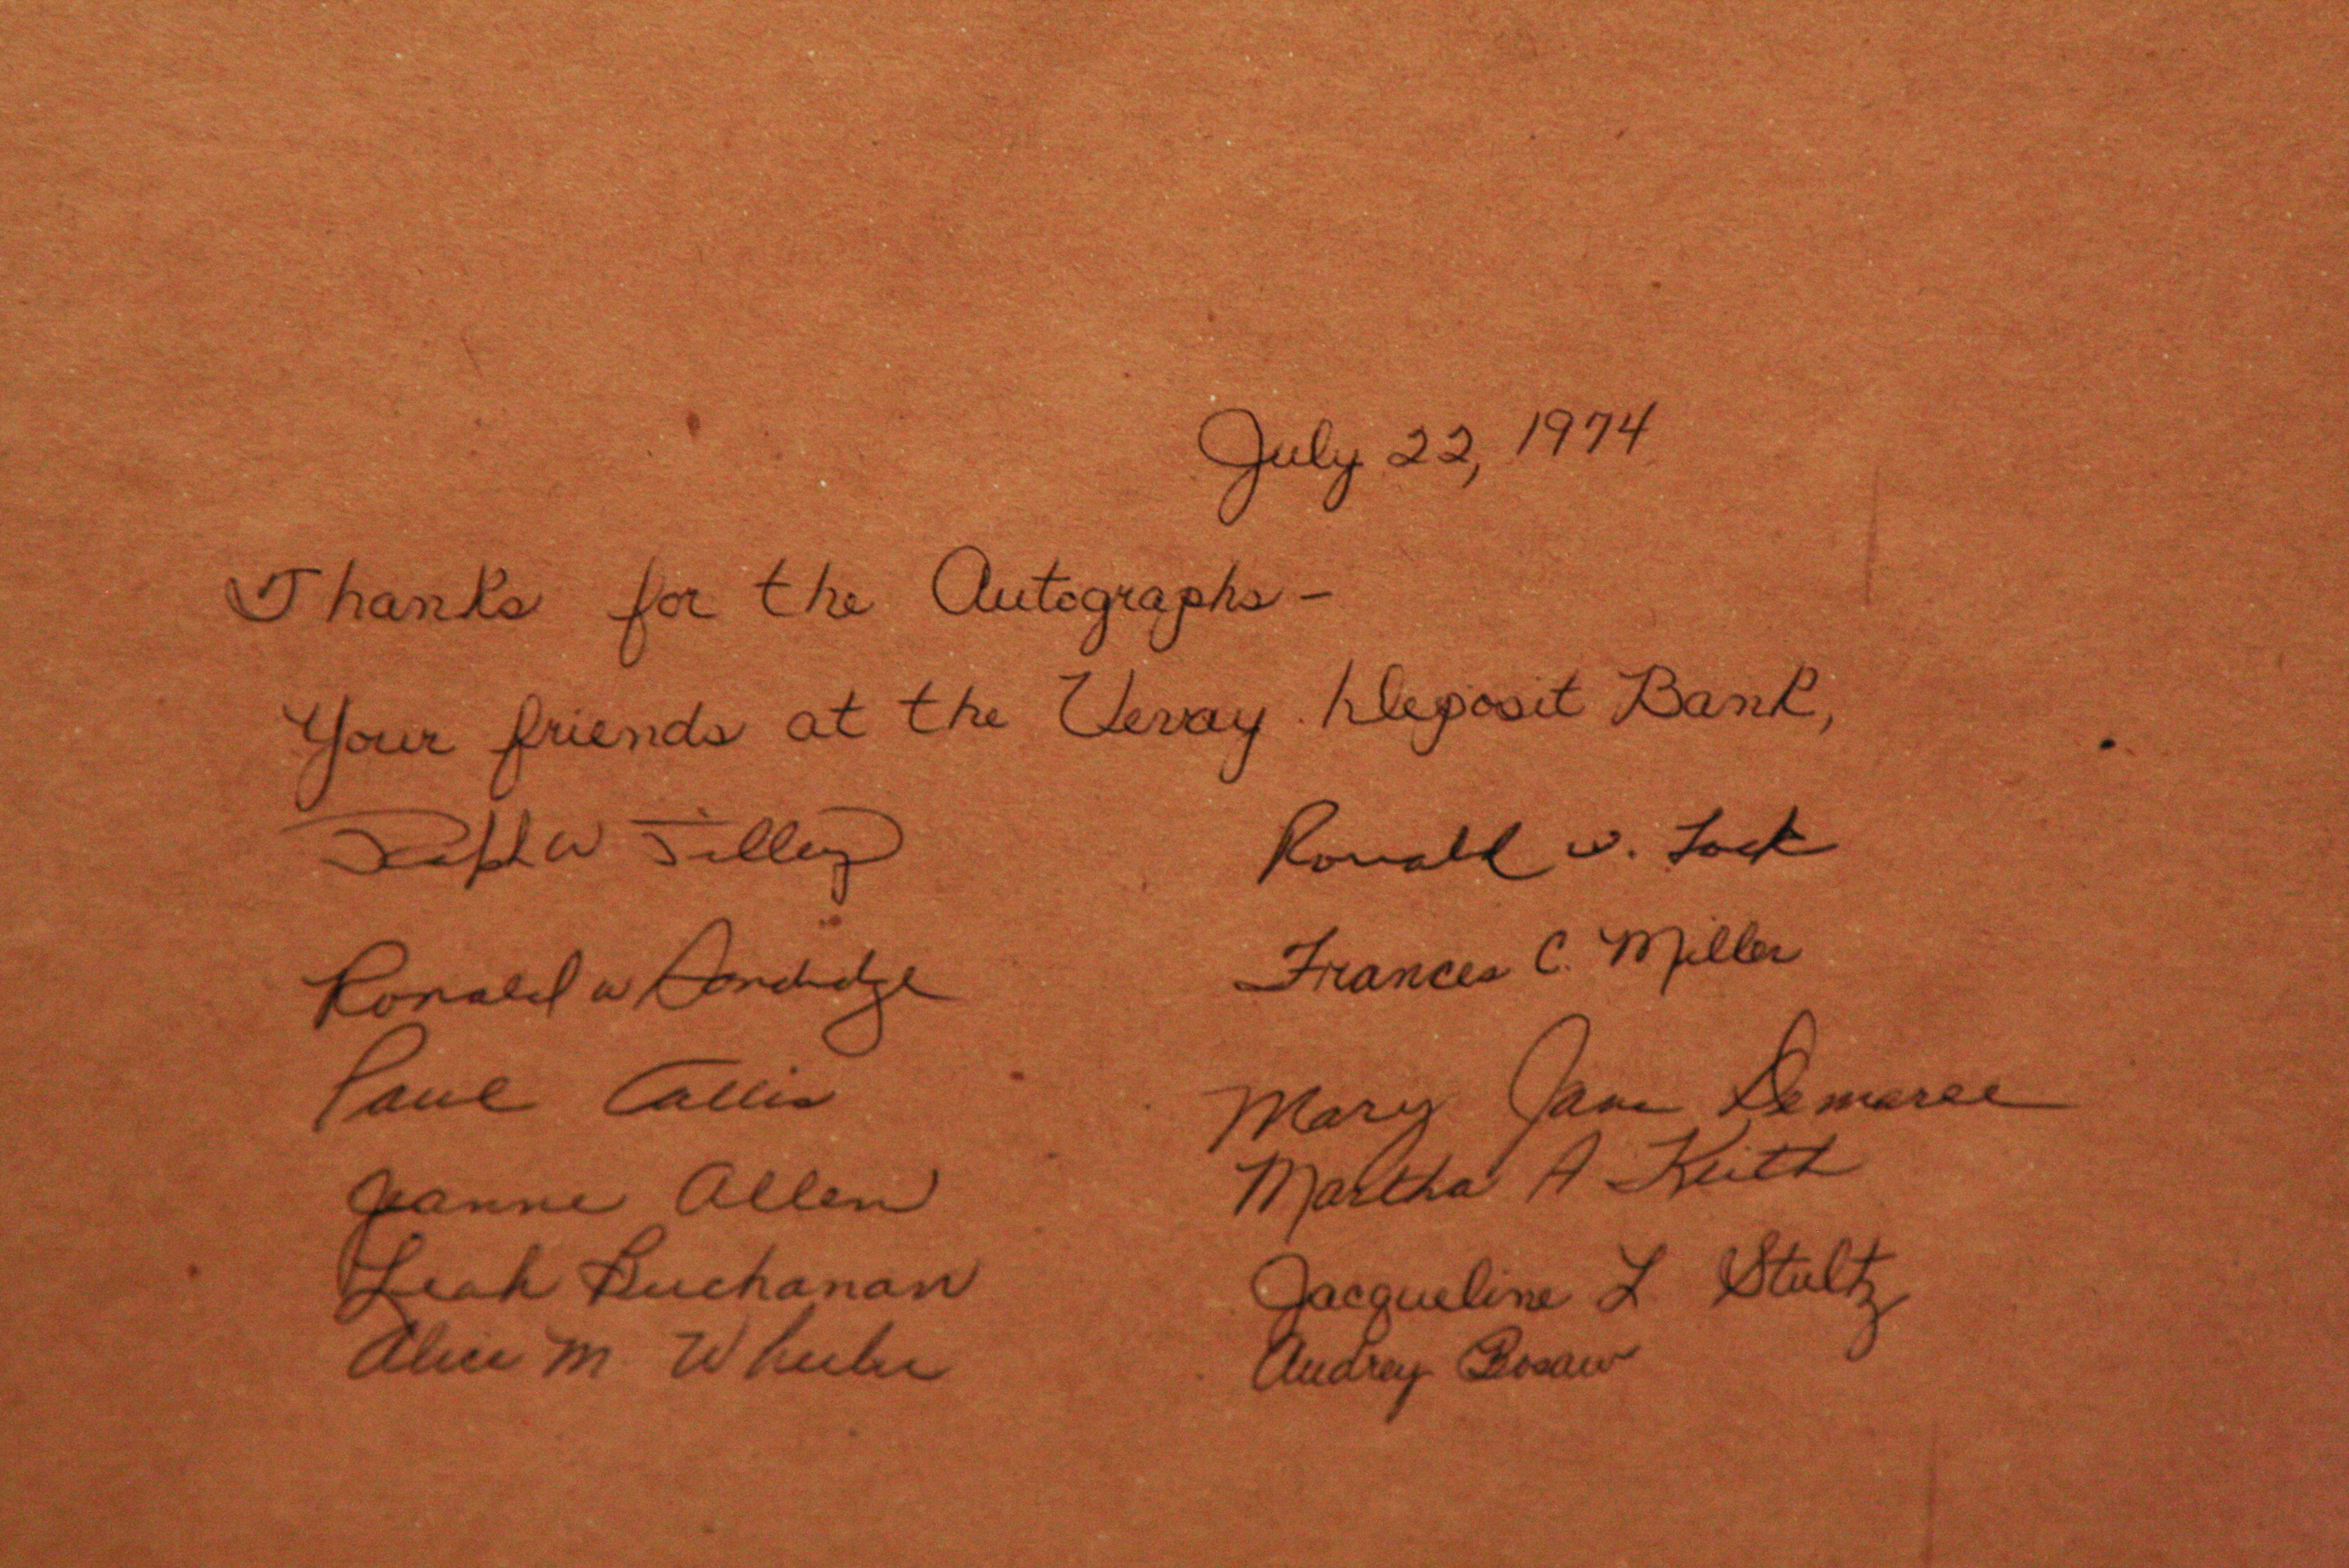 July 22, 1974
Thanks for the Autographs-
Your friends at the Vevay Deposit Bank,
W Tilley
Ronald w. Lock
Ronald W
Frances C. Miller
Paul Callis
Mary Jane Demaree
Jeanne Allen
Martha A Keith
Leah Buchanan
Jacqueline L Stultz
Alice M. Wheeler
Audrey Bosaw